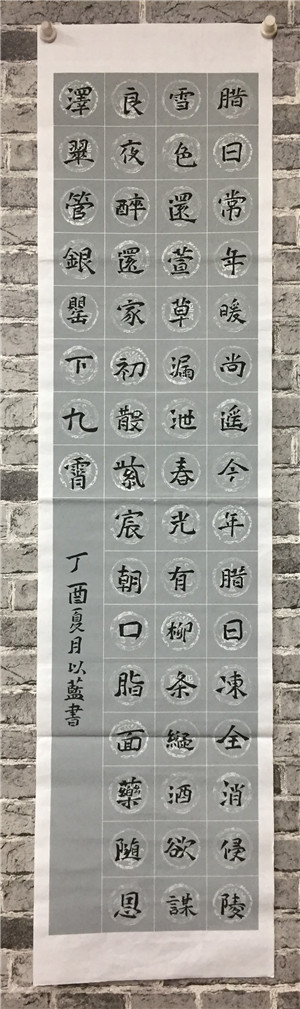 腊日常年暖尚遥今年腊日凍全消侵陵
雪色還萱草漏泄春光有柳条縱酒欲謀
良夜醉還家初散紫宸朝口脂面藥随恩
澤翠管銀罌下九霄
丁酉夏月以藍書